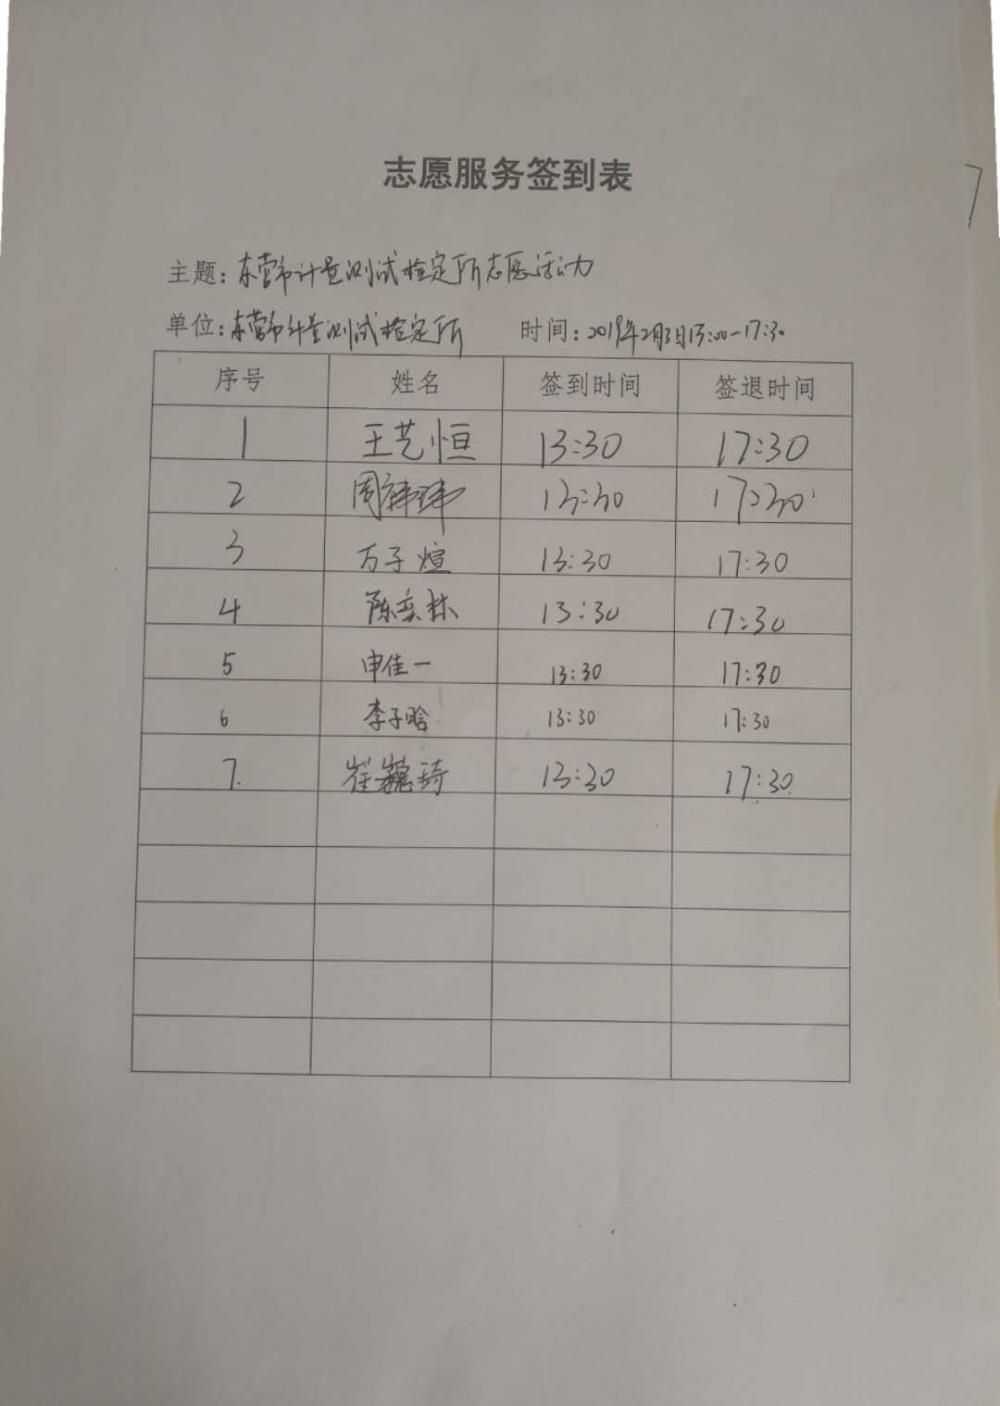 志愿服务签到表
主题：东营市计量测试检定所志愿活动
单位：东营市计量测试检定所 时间：2019年2月3日13:00-17:30
序号 姓名 签到时间 签退时间
1 王艺恒 13:30 17:30
2 周祎玮 13:30 17:30
3 万子煊 13:30 17:30
4 陈奕林 13:30 17:30
5 申佳一 13:30 17:30
6 李子晗 13:30 17:30
7. 崔巍琦 13:30 17:30